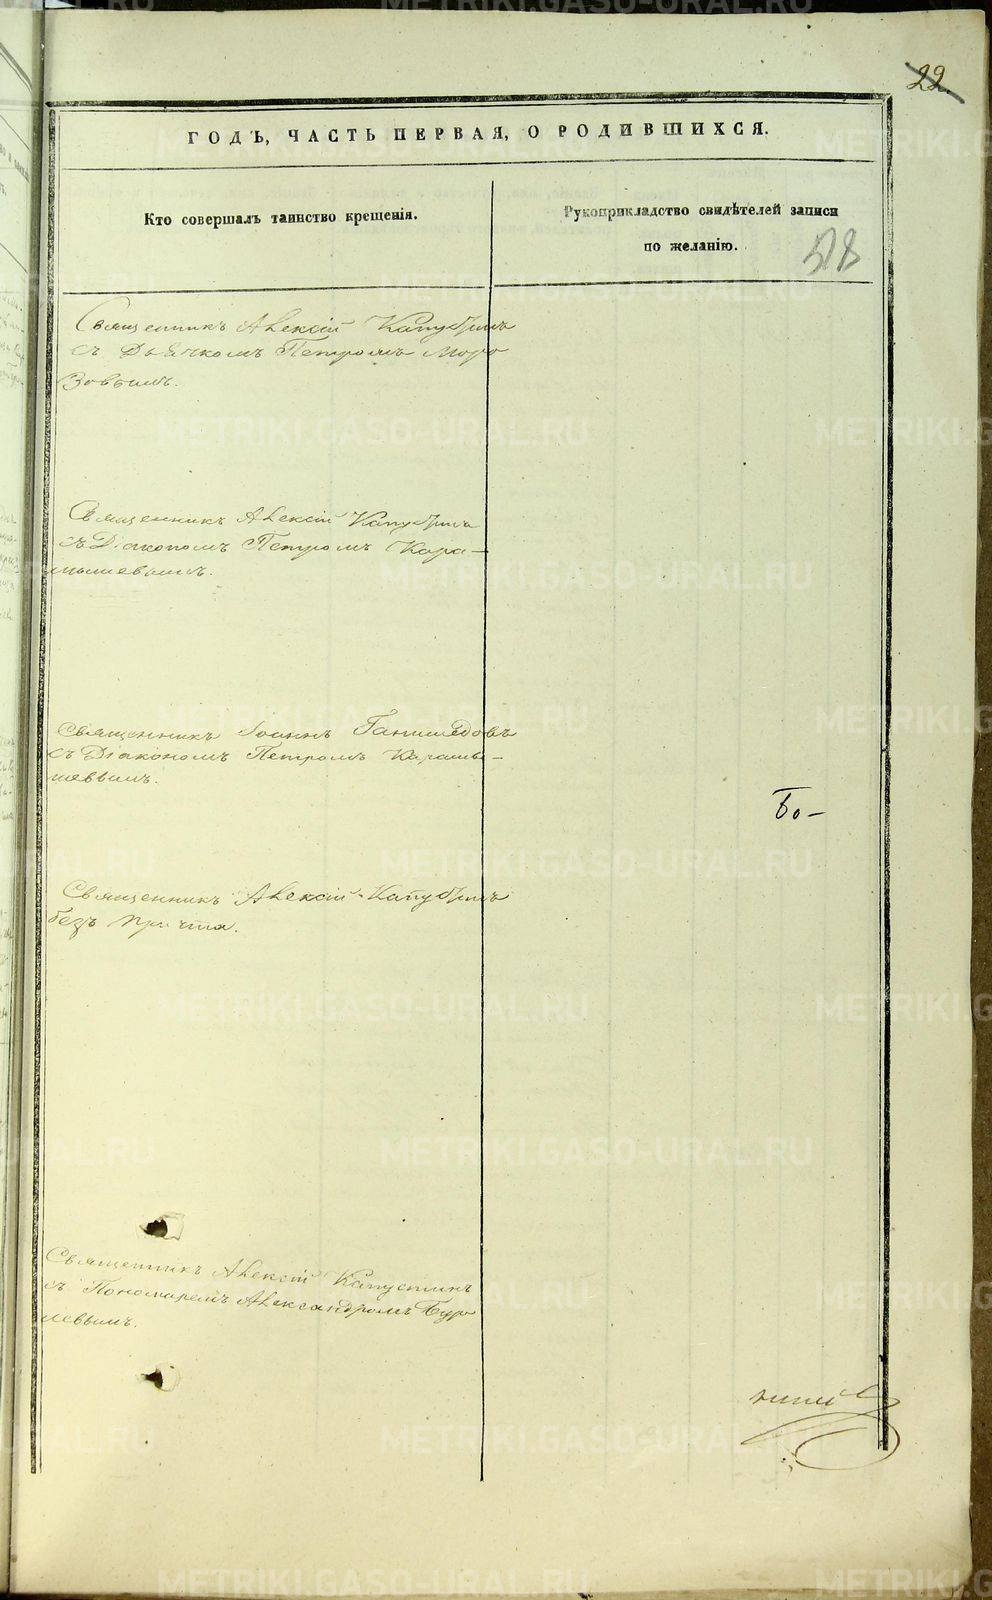 22.
ГОДЪ, ЧАСТЬ ПЕРВАЯ, О РОДИВШИХСЯ.
Кто совершалъ таинство крещенія.
Рукоприкладство свидѣтелей записи
по желанію.
Священникъ Алексій Капустинъ
съ Дьячкомъ Петромъ Моро
зовымъ.
Священникъ Алексій Капустинъ
съ Діакономъ Петромъ Кара-
мышевымъ.
Священникъ Іоаннъ
съ Діакономъ Петромъ Карамы-
шевымъ.
Бо-
Священникъ Алексій Капустинъ
безъ причта.
Священникъ Алексій Капустинъ
съ Пономаремъ Александромъ
METRIKI.GASO-URAL.RU